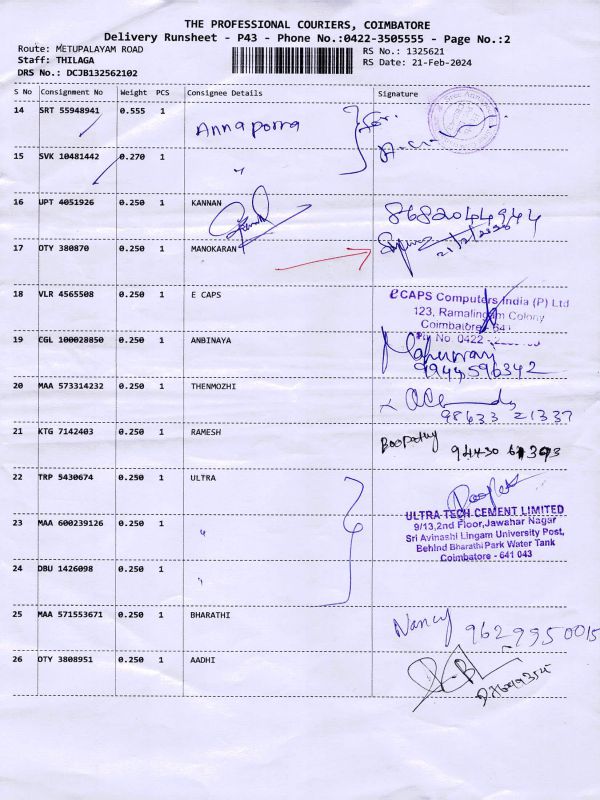 THE PROFESSIONAL COURIERS, COIMBATORE
Delivery Runsheet - P43 - Phone No.:0422-3505555 - Page No.:2
Route: METUPALAYAM ROAD
RS No.: 1325621
Staff: THILAGA
RS Date: 21-Feb-2024
DRS No.: DCJB132562102
S No Consignment No Weight PCS Consignee Details Signature
14 SRT 55948941 0.555 1 Annaporna For.
15 SVK 10481442 0.270 1 "
16 UPT 4051926 0.250 1 KANNAN 8682044944
17 OTY 380870 0.250 1 MANOKARAN
18 VLR 4565508 0.250 1 E CAPS
eCAPS Computers India (P) Ltd
123, Ramalingam Colony
Coimbatore - 641
Ph No. 0422
19 CGL 100028850 0.250 1 ANBINAYA
9944596342
20 MAA 573314232 0.250 1 THENMOZHI
98633 21337
21 KTG 7142403 0.250 1 RAMESH Boopathy
22 TRP 5430674 0.250 1 ULTRA
ULTRA TECH CEMENT LIMITED
9/13,2nd Floor,Jawahar Nagar
Sri Avinashi Lingam University Post,
Behind Bharathi Park Water Tank
Coimbatore - 641 043
23 MAA 600239126 0.250 1 "
24 DBU 1426098 0.250 1 "
25 MAA 571553671 0.250 1 BHARATHI Nancy 9629950015
26 OTY 3808951 0.250 1 AADHI